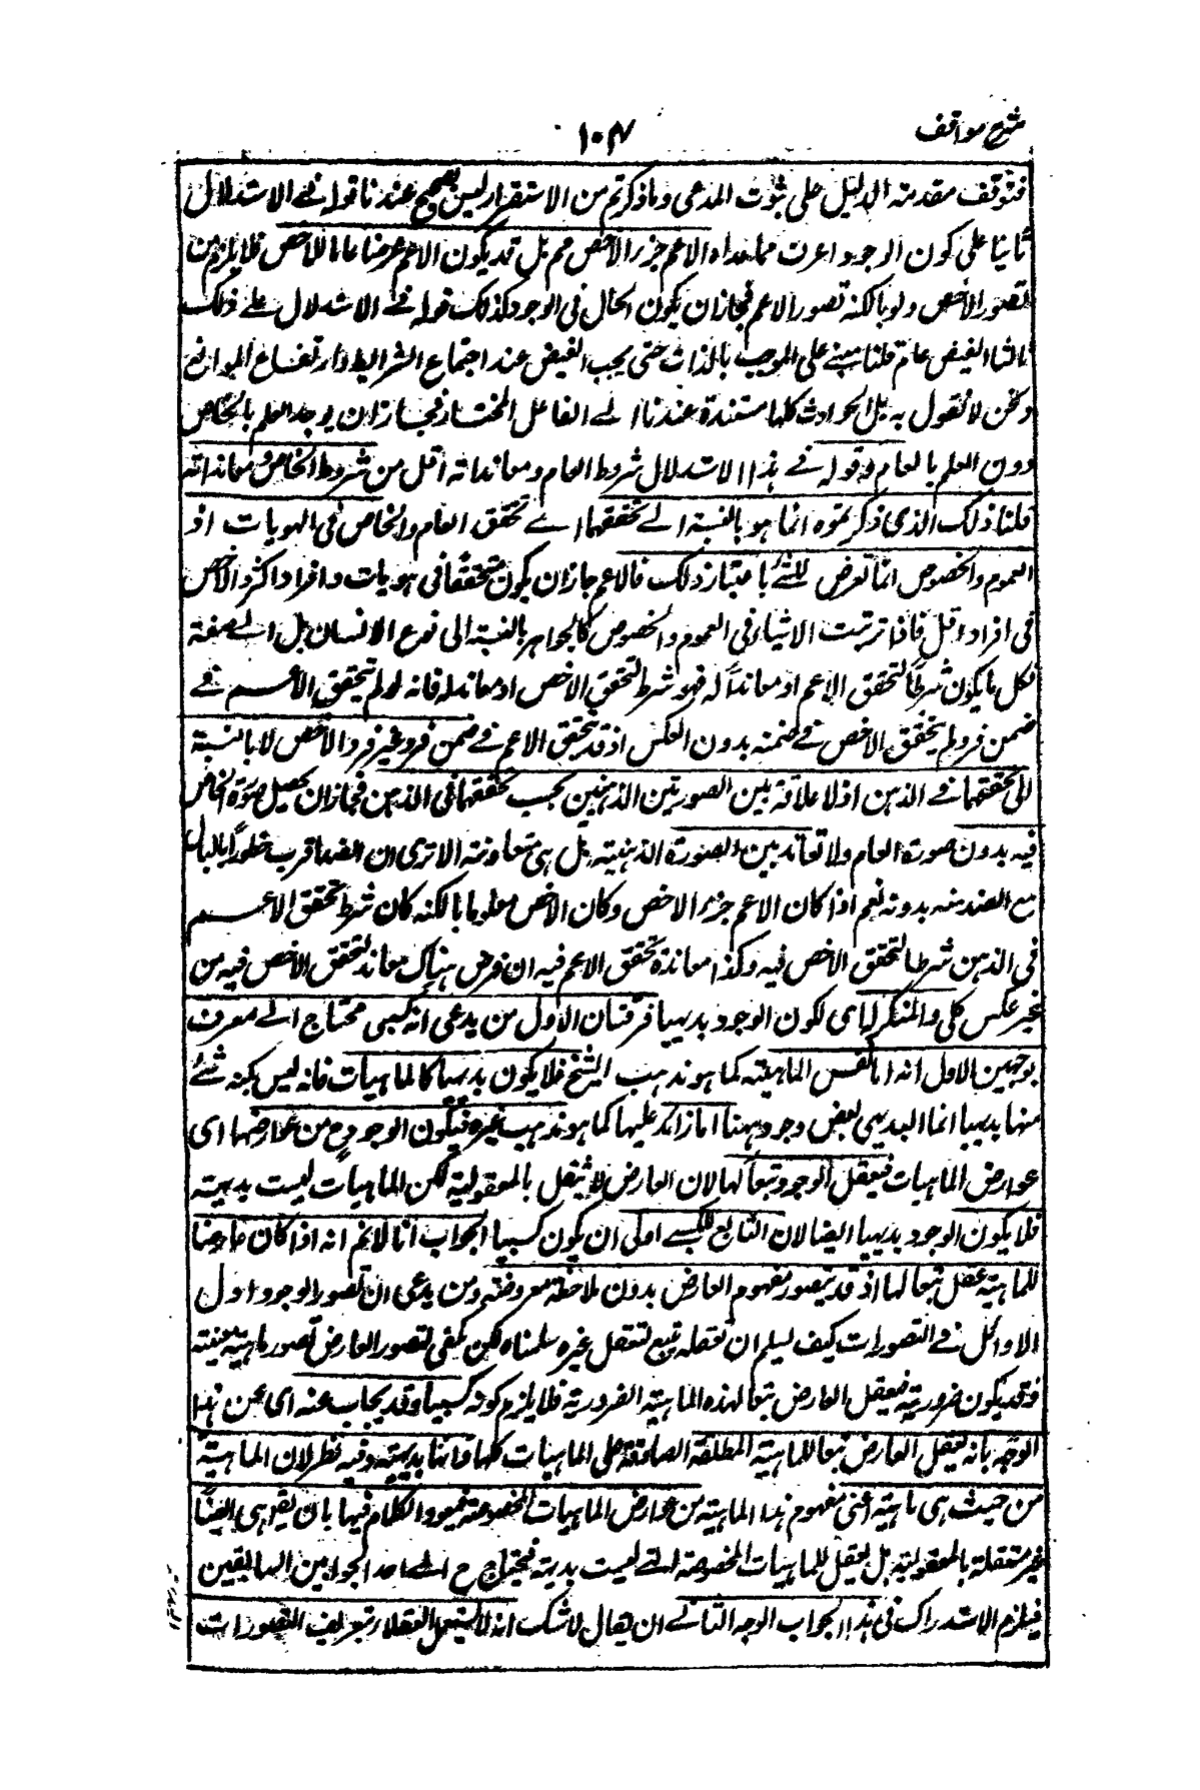 شرح مواقف
١٠٤
فتوقف مقدمة الدليل على ثبوت المدعى وما ذكرتم من الاستقرار ليس بصحيح عندنا قوله فى الاستدلال
ثانيا على كون الوجود اعرف مما عداه الاعم جزء الاخص مم بل قد يكون الاعم عرضا عاما للاخص فلا يلزم من
تصور الاخص ولو بالكنه تصور الاعم فجاز ان يكون الحال فى الوجود كذلك قوله فى الاستدلال على ذلك
ثالثا الفيض عام قلنا مبنى على الموجب بالذات حتى يجب الفيض عند اجتماع الشرائط وارتفاع الموانع
ونحن لا نقول به بل الحوادث كلها مستندة عندنا الى الفاعل المختار فجاز ان يوجد العلم بالخاص
دون العلم بالعام وقوله فى هذا الاستدلال شروط العام ومعانداته اقل من شروط الخاص ومعانداته
قلنا ذلك الذى ذكرتموه انما هو بالنسبة الى تحققهما اى تحقق العام والخاص فى الهويات اذ
العموم والخصوص انما تعرض للشئ باعتبار ذلك فالاعم جاز ان يكون متحققا فى هويات وافراد اكثر والاخص
فى افراد اقل فاذا ترتبت الاشياء فى العموم والخصوص كالجواهر بالنسبة الى نوع الانسان بل الى صنفه
فكل ما يكون شرطا لتحقق الاعم او معاندا له فهو شرط لتحقق الاخص او معاند له فانه لو لم يتحقق الاعم فى
ضمن فرد لم يتحقق الاخص فى ضمنه بدون العكس اذ قد يتحقق الاعم فى ضمن فرد غير فرد الاخص لا بالنسبة
الى تحققهما فى الذهن اذ لا علاقة بين الصورتين الذهنيتين بحسب تحققهما فى الذهن فجاز ان يحصل صورة الخاص
فيه بدون صورة العام ولا تعاند بين الصورة الذهنية بل هى متعاونة الا ترى ان الضد اقرب خطورا بالبال
مع الضد منه بدونه نعم اذا كان الاعم جزء الاخص وكان الاخص معلوما بالكنه كان شرط تحقق الاعم
فى الذهن شرطا لتحقق الاخص فيه وكذا معاندة تحقق الاعم فيه ان فرض هناك معاند لتحقق الاخص فيه من
غير عكس كلى والمنكر له اى لكون الوجود بديهيا فرقتان الاول من يدعى انه كسبى محتاج الى معرف
بوجهين الاول انه اما نفس الماهية كما هو مذهب الشيخ فلا يكون بديهيا كالماهيات فانه ليس كنه شئ
منها بديهيا انما البديهى بعض وجوهها واما زائد عليها كما هو مذهب غيره فيكون الوجود ح من عوارضها اى
عوارض الماهيات فيعقل الوجود تبعا لها لان العارض لا يستقل بالمعقولية لكن الماهيات ليست بديهية
فلا يكون الوجود بديهيا ايضا لان التابع للكسبى اولى ان يكون كسبيا الجواب انا لا نم انه اذا كان عارضا
للماهية عقل تبعا لها اذ قد يتصور مفهوم العارض بدون ملاحظة معروضه ومن يدعى ان تصور الوجود اول
الاوائل فى التصورات كيف يسلم ان تعقله تبع لتعقل غيره سلمناه لكن يكفى لتصور العارض تصور ماهية معينة
وقد يكون ضرورية فيعقل العارض تبعا لهذه الماهية الضرورية فلا يلزم كونه كسبيا وقد يجاب عنه اى عن هذا
الوجه بانه يعقل العارض تبعا للماهية المطلقة الصادقة على الماهيات كلها فانها بديهية وفيه نظر لان الماهية
من حيث هى ماهية اعنى مفهوم هذا الماهية من عوارض الماهيات المخصوصة فيعود الكلام فيها بان يقال هى ايضا
غير مستقلة بالمعقولية بل يعقل للماهيات المخصوصة التى ليست بديهية فيحتاج ح الى احد الجوابين السابقين
فيلزم الاستدراك فى هذا الجواب الوجه الثانى ان يقال لا شك انه لا يشتغل العقلاء بتعريف التصورات